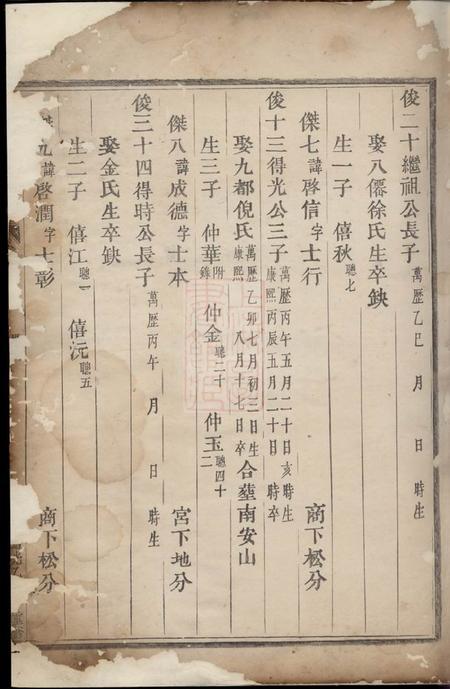 俊二十繼祖公長子萬歷乙巳 月 日 時生
娶八僊徐氏生卒缺
生一子 僖秋聰七
傑七諱啓信字士行 商下松分
俊十三得光公三子萬歷丙午五月二十日亥時生康熙丙辰五月二十日 時卒
娶九都倪氏萬歷乙卯七月初三日生康熙 八月十七日卒合塟南安山
生三子 仲華附錄 仲金聰二十 仲玉聰四十二
傑八諱成德字士本 宮下地分
俊三十四得時公長子萬歷丙午 月 日 時生
娶金氏生卒缺
生二子 僖江聰一 僖沅聰五
傑九諱啓潤字士彰 商下松分